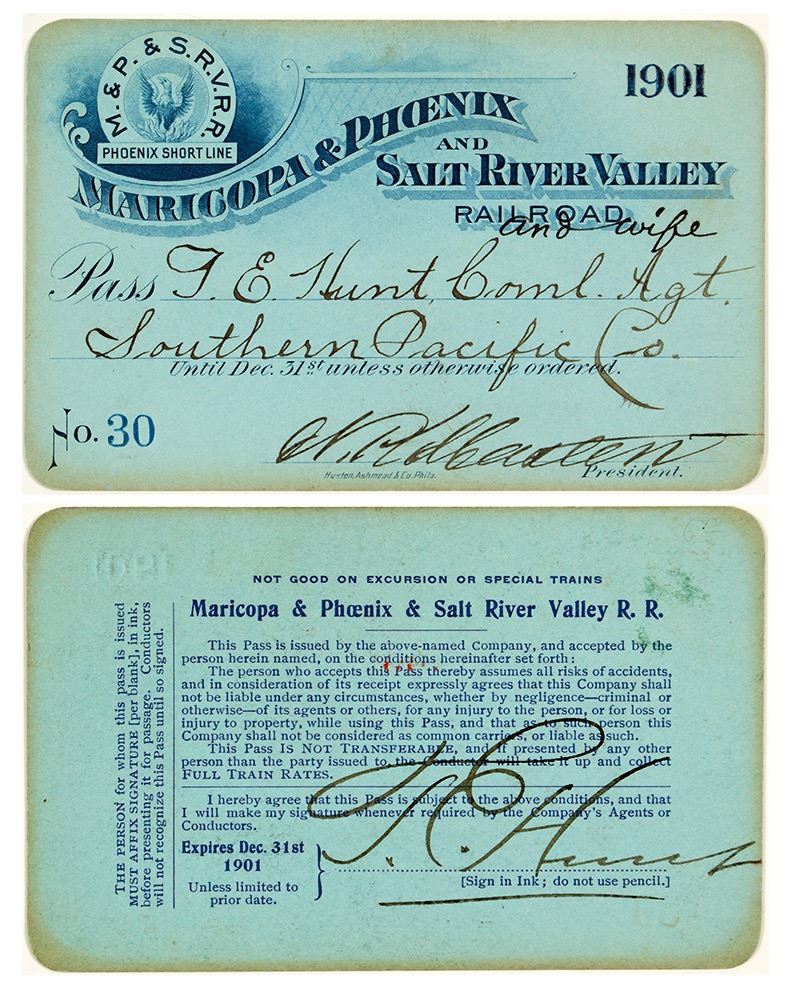 M. & P. & S.R.V.R.R.
PHOENIX SHORT LINE
1901
MARICOPA & PHŒNIX
AND
SALT RIVER VALLEY
RAILROAD.
and wife
Pass F. E. Hunt, Coml. Agt.
Southern Pacific Co.
Until Dec. 31st unless otherwise ordered.
No. 30
President.
Huston, Ashmead & Co. Phila.
1901
NOT GOOD ON EXCURSION OR SPECIAL TRAINS
Maricopa & Phœnix & Salt River Valley R. R.
This Pass is issued by the above-named Company, and accepted by the
person herein named, on the conditions hereinafter set forth:
The person who accepts this Pass thereby assumes all risks of accidents,
and in consideration of its receipt expressly agrees that this Company shall
not be liable under any circumstances, whether by negligence—criminal or
otherwise—of its agents or others, for any injury to the person, or for loss or
injury to property, while using this Pass, and that as to such person this
Company shall not be considered as common carriers, or liable as such.
This Pass IS NOT TRANSFERABLE, and if presented by any other
person than the party issued to, the Conductor will take it up and collect
FULL TRAIN RATES.
I hereby agree that this Pass is subject to the above conditions, and that
I will make my signature whenever required by the Company's Agents or
Conductors.
Expires Dec. 31st
1901
Unless limited to
prior date.
F. E. Hunt
[Sign in Ink; do not use pencil.]
THE PERSON for whom this pass is issued
MUST AFFIX SIGNATURE [per blank], in ink,
before presenting it for passage. Conductors
will not recognize this Pass until so signed.